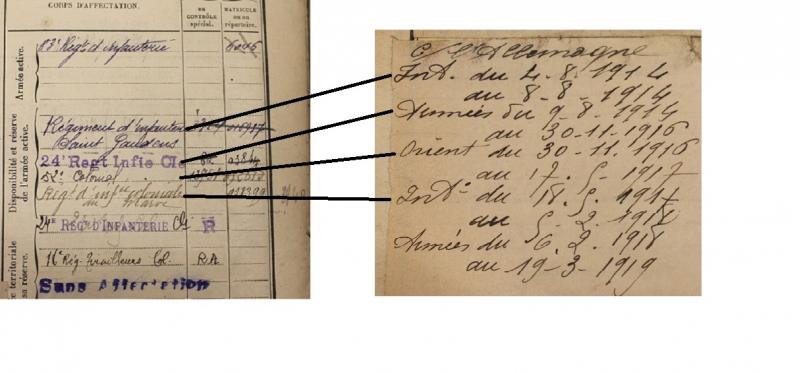 CORPS D'AFFECTATION.
NU CONTRÔLE spécial.
MATRICULE ou au répertoire.
Armée active.
83e Régt d'infanterie
Disponibilité et réserve de l'armée active.
Régiment d'Infanterie
Saint Gaudens
24e Regt Infie Cle
52e Colonial
Régt d'inf. coloniale
du Maroc
24e REG. D'INFANTERIE Cle R
16e Rég. Tirailleurs Col. RA
Sans Affectation
territoriale
sa réserve.
C/ l'Allemagne
Int. du 4-8-1914
au 8-8-1914
Armées du 9-8-1914
au 30-11-1916
Orient du 30-11-1916
au 17.5.1917
Int. du 18.5.1917
au 5.2.1918
Armées du 6.2.1918
au 19-3-1919